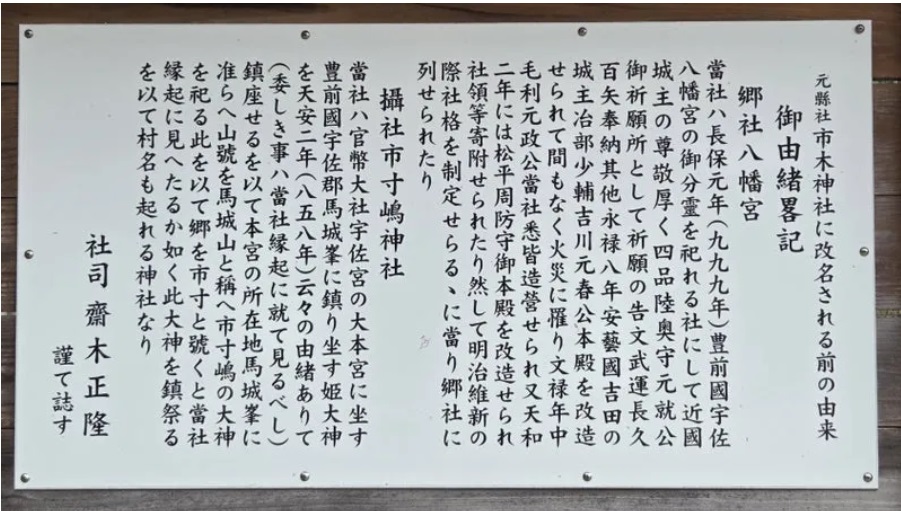 元縣社市木神社に改名される前の由来
御由緒畧記
郷社八幡宮
當社ハ長保元年(九九九年)豊前國宇佐
八幡宮の御分靈を祀れる社にして近國
城主の尊敬厚く四品陸奥守元就公
御祈願所として祈願の告文武運長久
百矢奉納其他永禄八年安藝國吉田の
城主冶部少輔吉川元春公本殿を改造
せられて間もなく火災に罹り文禄年中
毛利元政公當社悉皆造營せられ又天和
二年には松平周防守御本殿を改造せられ
社領等寄附せられたり然して明治維新の
際社格を制定せらるゝに當り郷社に
列せられたり
攝社市寸嶋神社
當社ハ官幣大社宇佐宮の大本宮に坐す
豊前國宇佐郡馬城峯に鎮り坐す姫大神
を天安二年(八五八年)云々の由緒ありて
(委しき事ハ當社縁起に就て見るべし)
鎮座せるを以て本宮の所在地馬城峯に
准らへ山號を馬城山と稱へ市寸嶋の大神
を祀る此を以て郷を市寸と號くと當社
縁起に見へたるか如く此大神を鎮祭る
を以て村名も起れる神社なり
社司 齋木正隆
謹て誌す